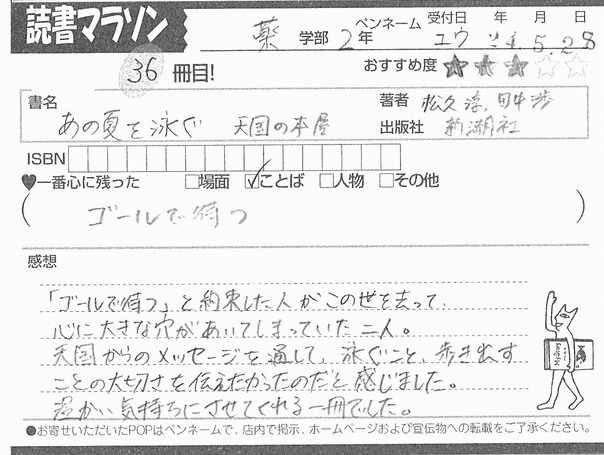 読書マラソン
薬 学部 2年 ペンネーム ユウ 受付日 年 月 日 24.5.28
36 冊目! おすすめ度 ★★★☆☆
書名 あの夏を泳ぐ 天国の本屋
著者 松久淳, 田中渉
出版社 新潮社
ISBN
♥一番心に残った □場面 ☑ことば □人物 □その他
(ゴールで待つ)
感想
「ゴールで待つ」と約束した人がこの世を去って、
心に大きな穴があいてしまっていた二人。
天国からのメッセージを通して、泳ぐこと、歩き出す
ことの大切さを伝えたかったのだと感じました。
温かい気持ちにさせてくれる一冊でした。
●お寄せいただいたPOPはペンネームで、店内で掲示、ホームページおよび宣伝物への転載をご了承ください。